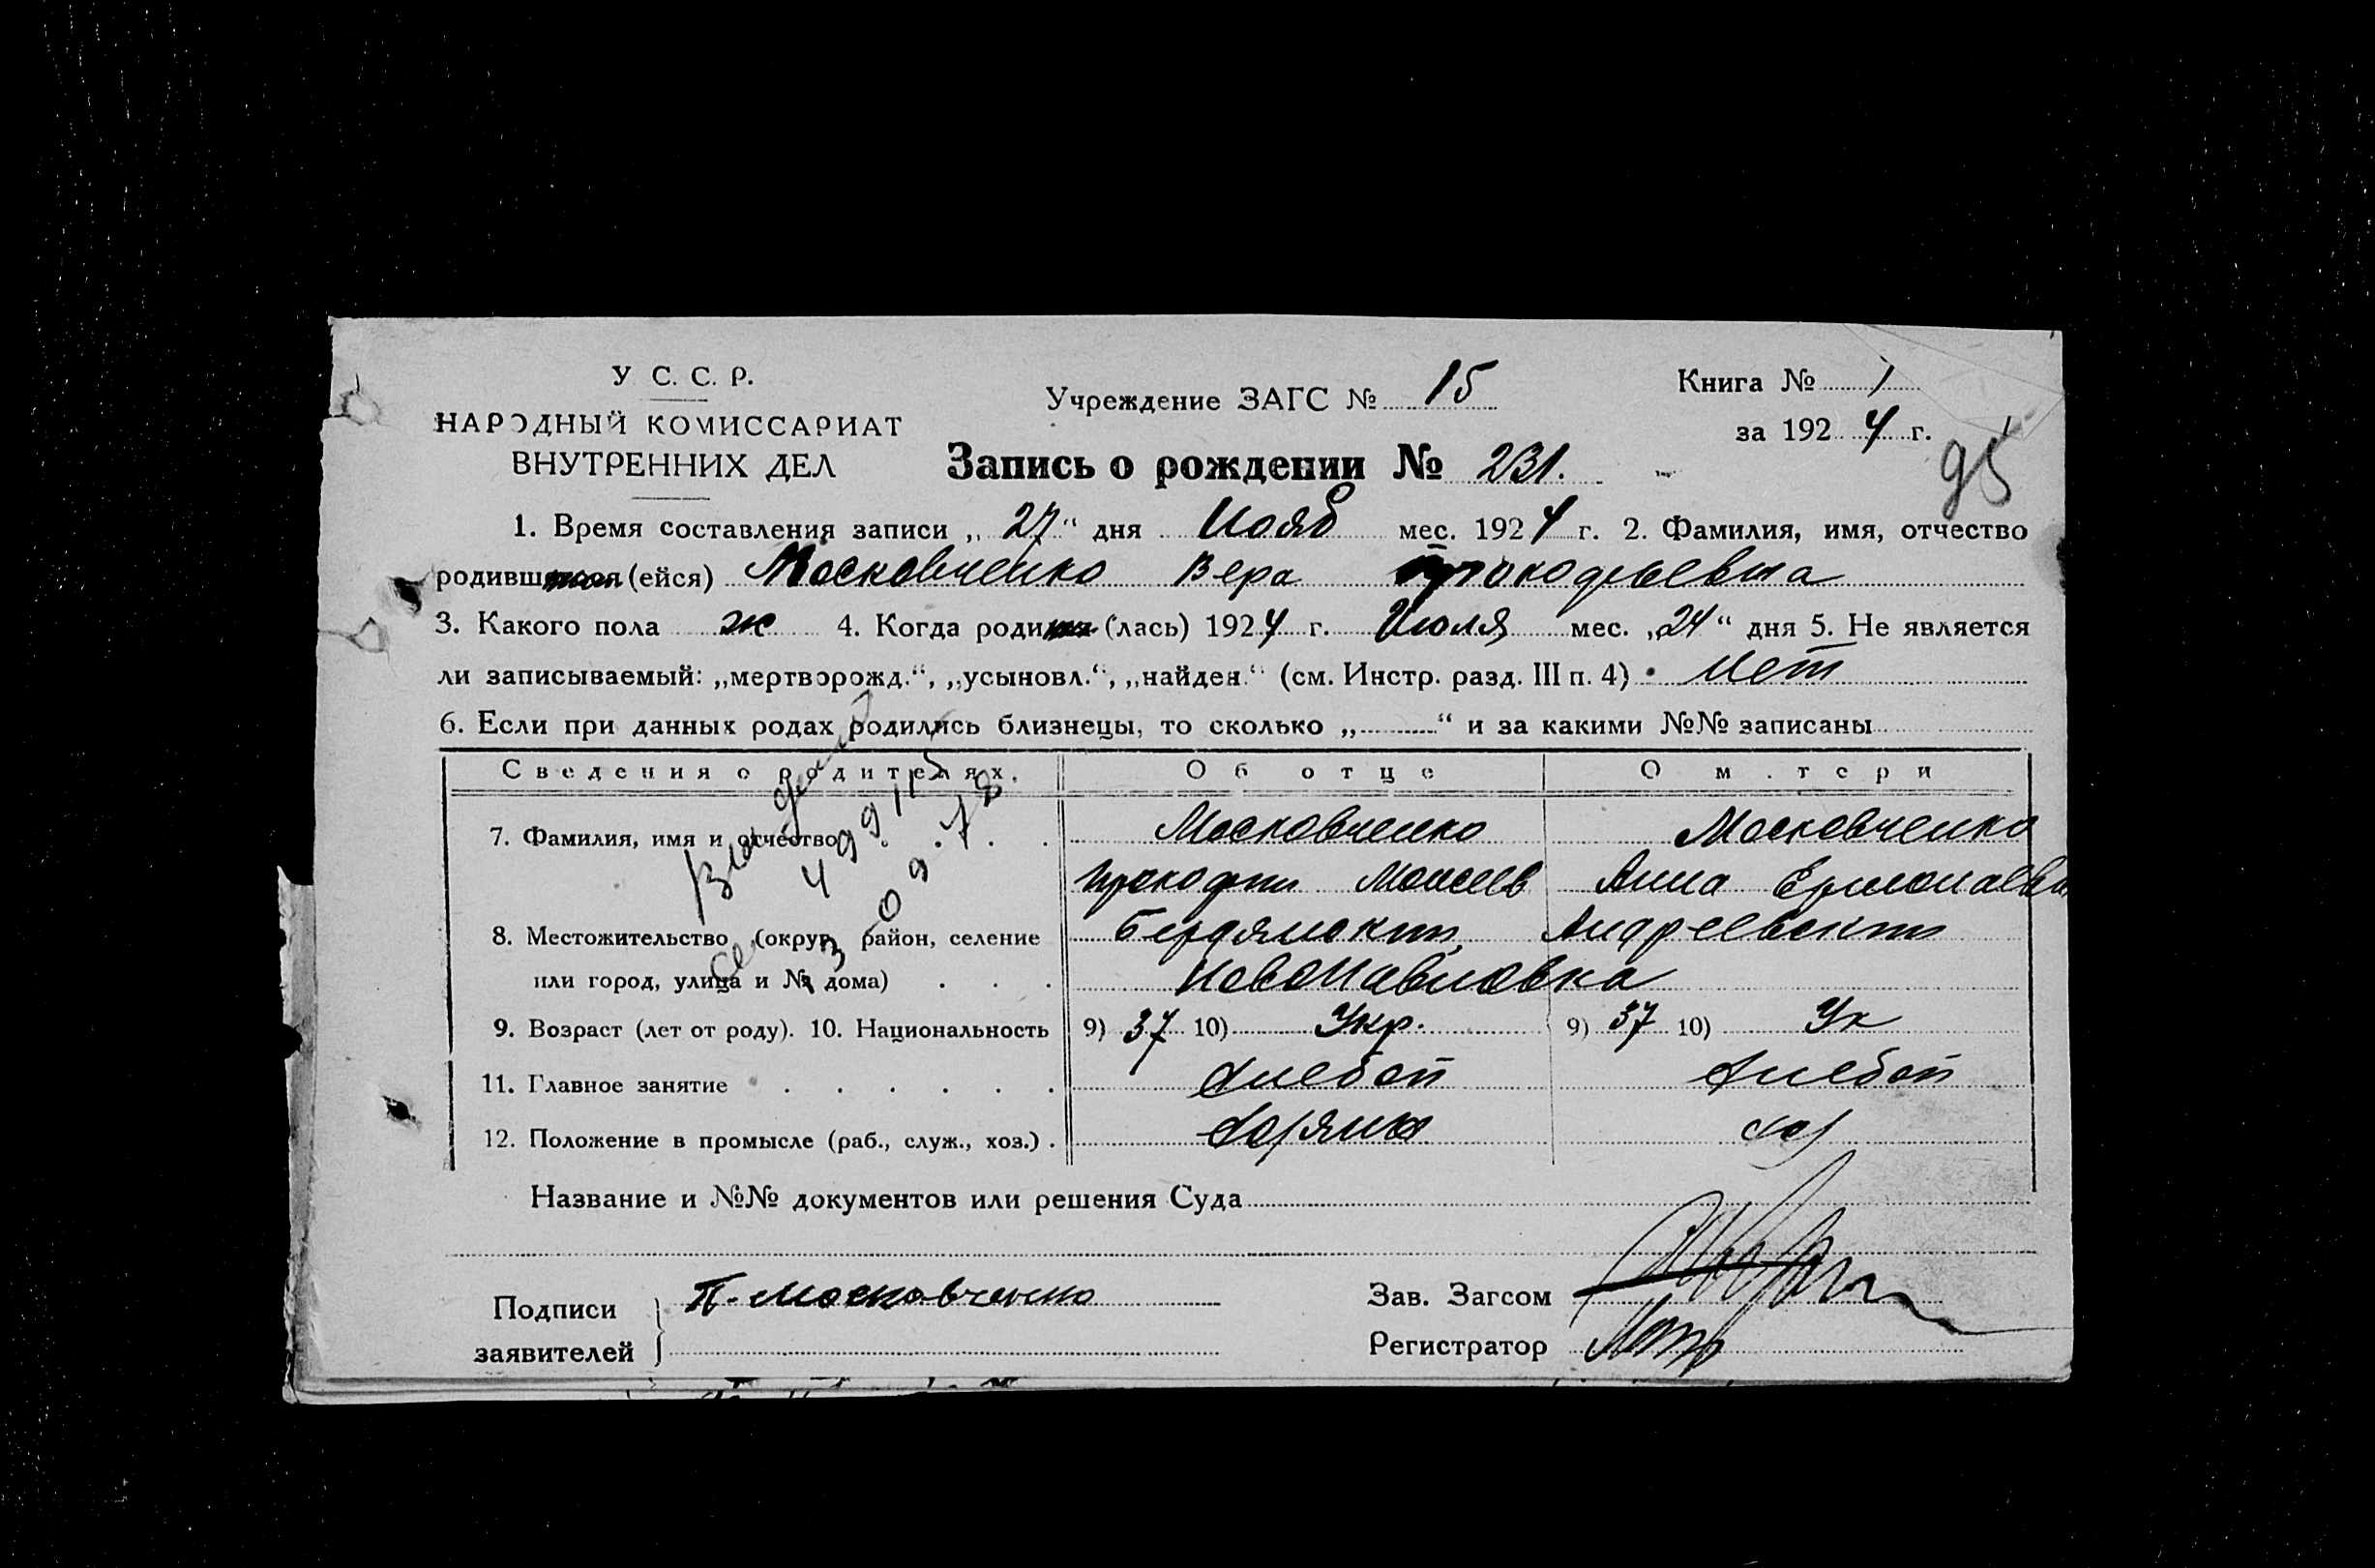 У С. С. Р.
НАРОДНЫЙ КОМИССАРИАТ
ВНУТРЕННИХ ДЕЛ
Учреждение ЗАГС № 15
Книга № 1
за 1924 г.
95
Запись о рождении № 231.
1. Время составления записи „27“ дня Нояб мес. 1924 г. 2. Фамилия, имя, отчество
родивш (ейся) Московченко Вера Прокофьевна
3. Какого пола ж 4. Когда роди (лась) 1924 г. Июля мес. „24“ дня 5. Не является
ли записываемый: „мертворожд.“, „усыновл.“, „найден.“ (см. Инстр. разд. III п. 4) Нет
6. Если при данных родах родились близнецы, то сколько „ “ и за какими №№ записаны
Сведения о родителях. Об отце О матери
7. Фамилия, имя и отчество Московченко Московченко
Прокофий Моисеев Анна Ермолаевн
8. Местожительство (округ, район, селение Бердянский, Андреевский
или город, улица и № дома) Новопавловка
9. Возраст (лет от роду). 10. Национальность 9) 37 10) Укр. 9) 37 10) Ук
11. Главное занятие Хлебоп Хлебоп
12. Положение в промысле (раб., служ., хоз.) Хозяин хоз
Название и №№ документов или решения Суда
Подписи заявителей П. Московченко
Зав. Загсом
Регистратор